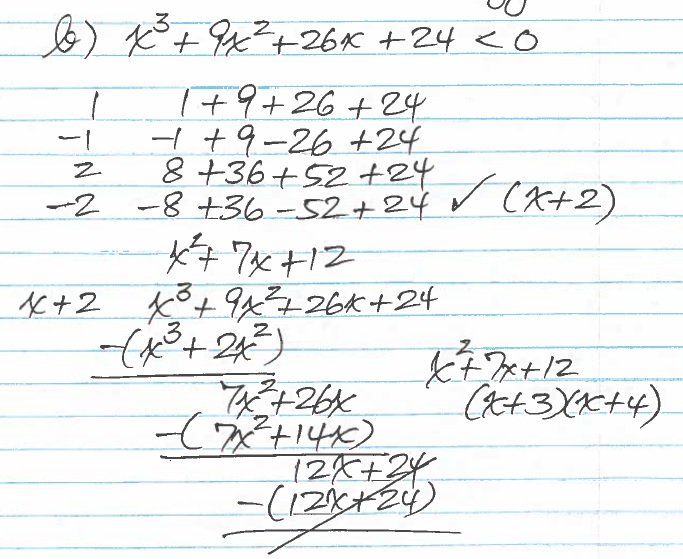 b) x³ + 9x² + 26x + 24 < 0
1 1 + 9 + 26 + 24
-1 -1 + 9 - 26 + 24
2 8 + 36 + 52 + 24
-2 -8 + 36 - 52 + 24 ✓ (x+2)
x² + 7x + 12
x + 2 x³ + 9x² + 26x + 24
-(x³ + 2x²)
7x² + 26x
-(7x² + 14x)
12x + 24
-(12x + 24)
x² + 7x + 12
(x+3)(x+4)